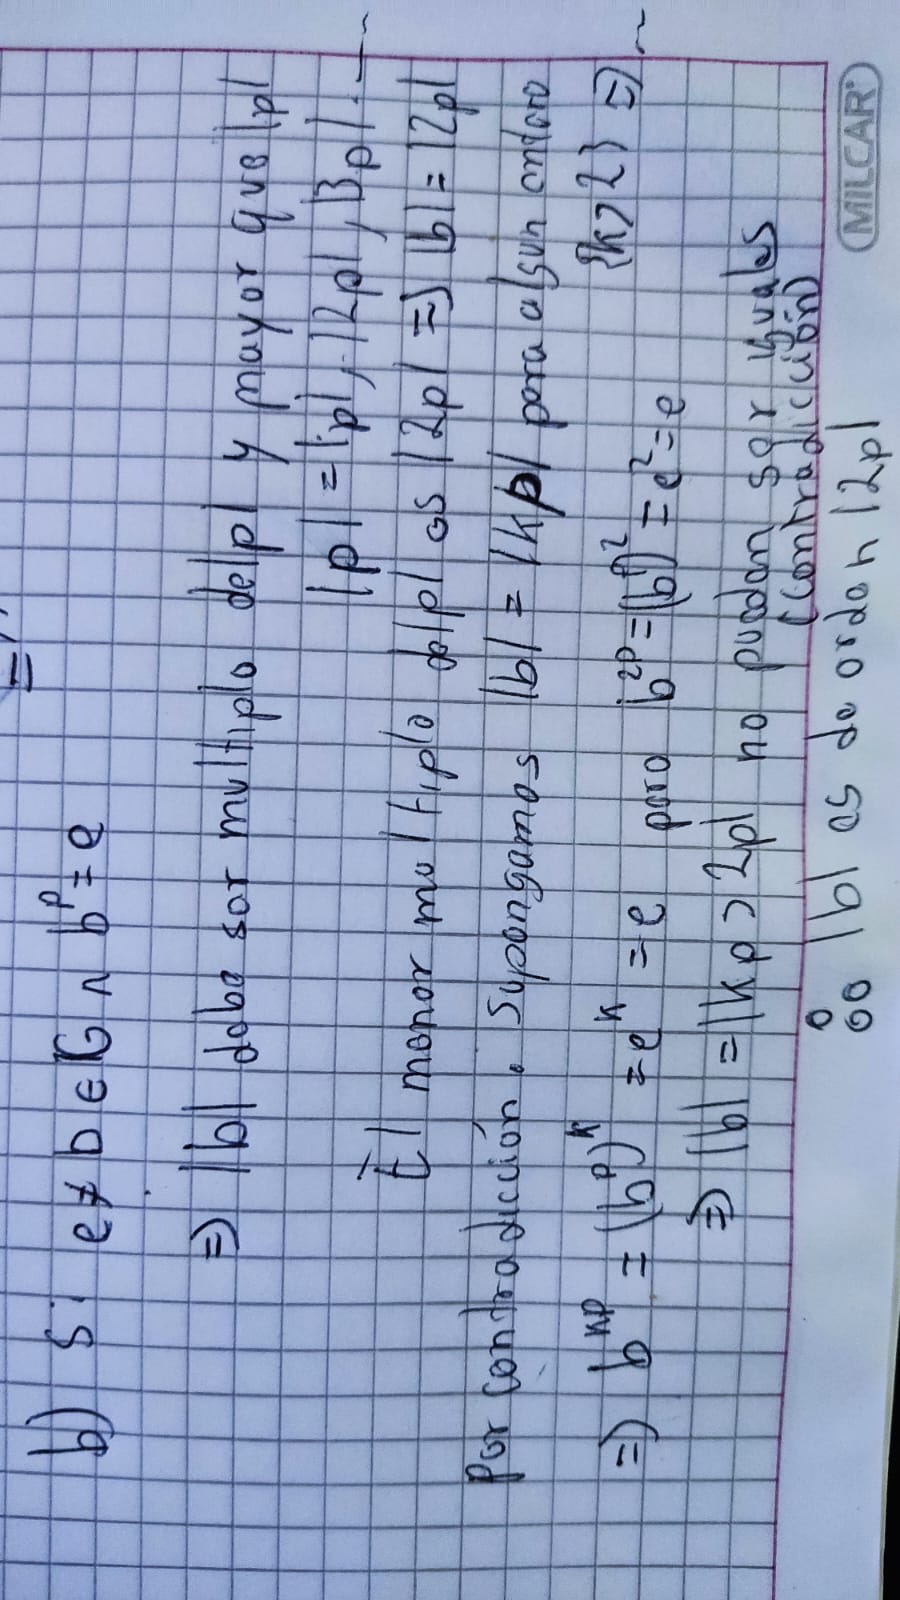 b) Si e ≠ b ∈ G ∧ b^p = e
⇒ |b| debe ser multiplo de |p| y mayor que |p|
|p| = |p|, |2p|, |3p| . —
El menor multiplo de |p| es |2p| ⇒ |b| = |2p|
Por contradicción. Supongamos |b| = |kp| para algun entero
{k > 2} ⇒
⇒ b^{kp} = (b^p)^k = e^k = e pero b^{2p} = (b^p)^2 = e^2 = e
⇒ |b| = |kp > 2p| no puedan ser iguales
(contradicción)
∴ |b| es de orden |2p|
MILCAR